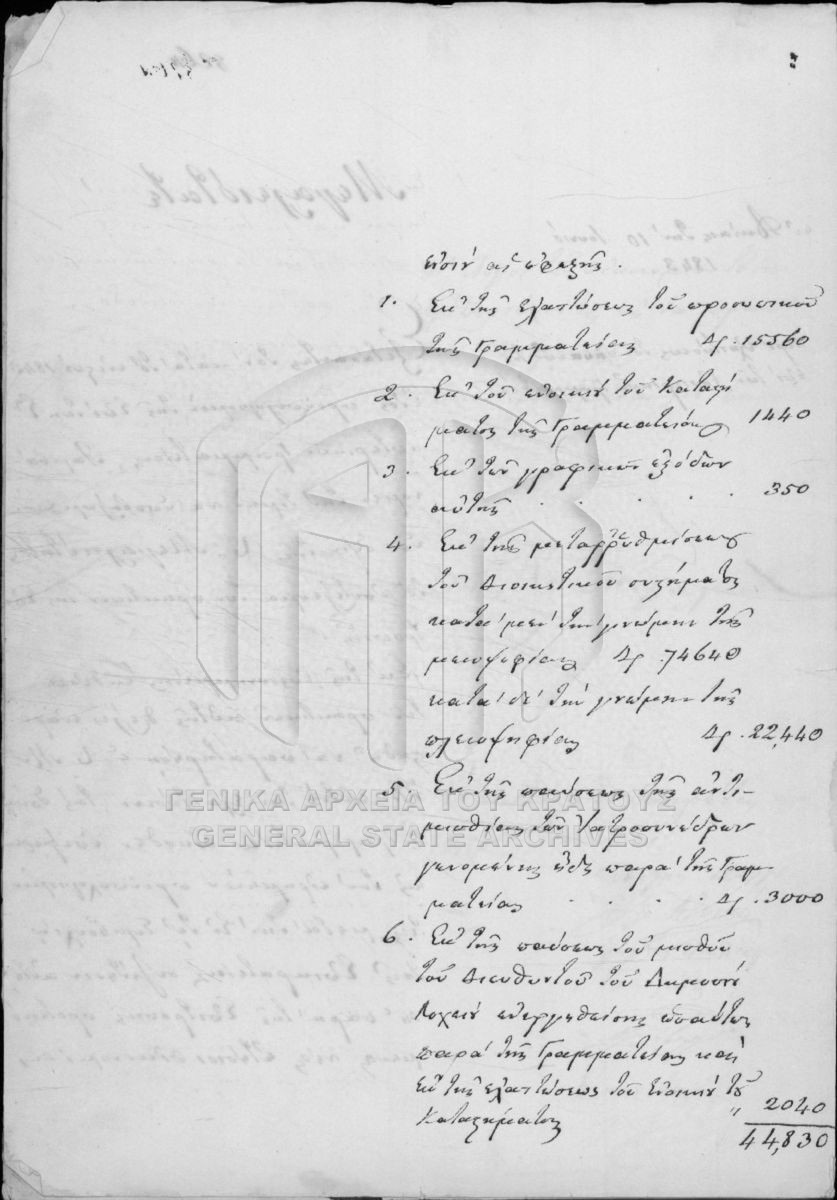 εἰσὶν αἱ ἐφεξῆς.
1. Ἐκ τῆς ἐλαττώσεως τοῦ προσωπικοῦ
τῆς Γραμματείας Δρ. 15560
2. Ἐκ τοῦ ἐνοικίου τοῦ Καταστή
ματος τῆς Γραμματείας 1440
3. Ἐκ τῶν γραφικῶν ἐξόδων
αὐτῆς . . . . 350
4. Ἐκ τῆς μεταῤῥυθμίσεως
τοῦ Διοικητικοῦ συστήματος
κατὰ μὲν τὴν γνώμην τῆς
μειοψηφίας Δρ. 74640
κατὰ δὲ τὴν γνώμην τῆς
πλειοψηφίας Δρ. 22,440
5. Ἐκ τῆς παύσεως τῆς ἀντι-
μισθίας τῶν Ἰατροσυνέδρων
γενομένης ἤδη παρὰ τῆς Γραμ-
ματείας . . . . Δρ. 3000
6. Ἐκ τῆς παύσεως τοῦ μισθοῦ
τοῦ Διευθυντοῦ τοῦ Δημοσίου
Λοχείου ἐνεργηθείσης ὡσαύτως
παρὰ τῆς Γραμματείας καὶ
ἐκ τῆς ἐλαττώσεως τοῦ ἐνοικίου τοῦ
Καταστήματος " 2040
44,830
ΓΕΝΙΚΑ ΑΡΧΕΙΑ ΤΟΥ ΚΡΑΤΟΥΣ
GENERAL STATE ARCHIVES